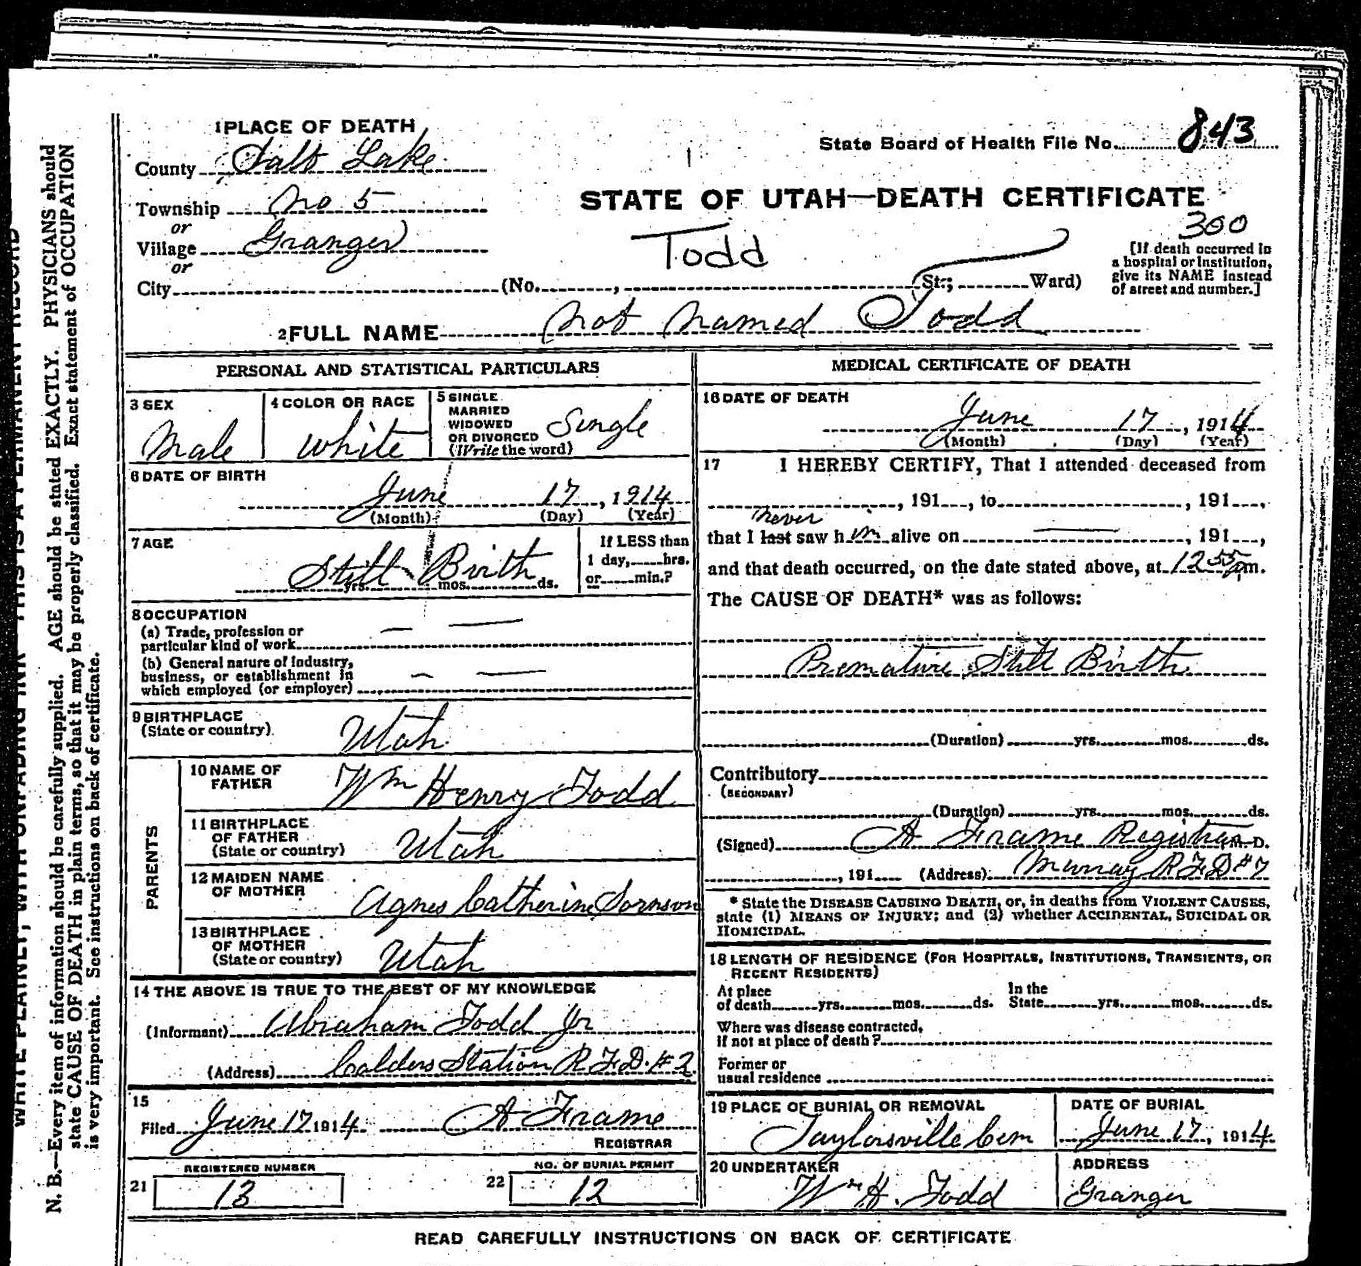 1 PLACE OF DEATH
State Board of Health File No. 843
County Salt Lake
Township No 5
or
Village Granger
or
City (No. , St.; Ward)
STATE OF UTAH—DEATH CERTIFICATE
300
Todd
[If death occurred in
a hospital or institution,
give its NAME instead
of street and number.]
2 FULL NAME Not Named Todd
PERSONAL AND STATISTICAL PARTICULARS
3 SEX
Male
4 COLOR OR RACE
White
5 SINGLE
MARRIED
WIDOWED
OR DIVORCED
(Write the word)
Single
6 DATE OF BIRTH
June 17, 1914
(Month) (Day) (Year)
7 AGE
Still Birth
yrs. mos. ds.
If LESS than
1 day, hrs.
or min.?
8 OCCUPATION
(a) Trade, profession or
particular kind of work
(b) General nature of Industry,
business, or establishment in
which employed (or employer)
9 BIRTHPLACE
(State or country)
Utah
PARENTS
10 NAME OF
FATHER
Wm Henry Todd
11 BIRTHPLACE
OF FATHER
(State or country)
Utah
12 MAIDEN NAME
OF MOTHER
Agnes Catherine Sornson
13 BIRTHPLACE
OF MOTHER
(State or country)
Utah
14 THE ABOVE IS TRUE TO THE BEST OF MY KNOWLEDGE
(Informant) Abraham Todd Jr
(Address) Calders Station R.F.D. #2
15
Filed June 17 1914 A Frame
REGISTRAR
REGISTERED NUMBER
21 13
NO. OF BURIAL PERMIT
22 12
MEDICAL CERTIFICATE OF DEATH
16 DATE OF DEATH
June 17, 1914
(Month) (Day) (Year)
17 I HEREBY CERTIFY, That I attended deceased from
, 191 , to , 191 ,
never
that I last saw h im alive on , 191 ,
and that death occurred, on the date stated above, at 12 55 pm.
The CAUSE OF DEATH* was as follows:
Premature Still Birth
(Duration) yrs. mos. ds.
Contributory
(SECONDARY)
(Duration) yrs. mos. ds.
(Signed) A Frame Registrar M. D.
, 191 (Address) Murray R F D #7
* State the DISEASE CAUSING DEATH, or, in deaths from VIOLENT CAUSES,
state (1) MEANS OF INJURY; and (2) whether ACCIDENTAL, SUICIDAL OR
HOMICIDAL.
18 LENGTH OF RESIDENCE (FOR HOSPITALS, INSTITUTIONS, TRANSIENTS, OR
RECENT RESIDENTS)
At place
of death yrs. mos. ds.
In the
State yrs. mos. ds.
Where was disease contracted,
if not at place of death?
Former or
usual residence
19 PLACE OF BURIAL OR REMOVAL
Taylorsville Cem
DATE OF BURIAL
June 17, 1914
20 UNDERTAKER
Wm H. Todd
ADDRESS
Granger
READ CAREFULLY INSTRUCTIONS ON BACK OF CERTIFICATE
N. B.—Every item of information should be carefully supplied. AGE should be stated EXACTLY. PHYSICIANS should
state CAUSE OF DEATH in plain terms, so that it may be properly classified. Exact statement of OCCUPATION
is very important. See instructions on back of certificate.